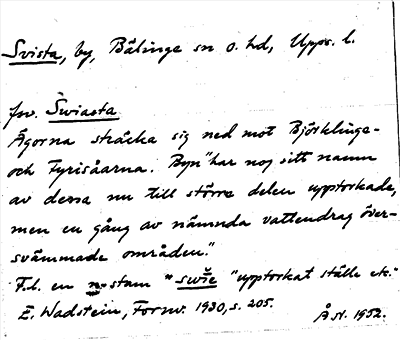 Svista, by, Bälinge sn o. hd, Upps. l.
fsv. Swiasta
Ägorna sträcka sig ned mot Björklinge-
och Fyrisåarna. Byn "har nog sitt namn
av dessa nu till större delen upptorkade,
men en gång av nämnda vattendrag över-
svämmade områden."
F.l. en n-stam "swie "upptorkat ställe etc."
E. Wadstein, Fornv. 1930, s. 205.
Å st. 1952.